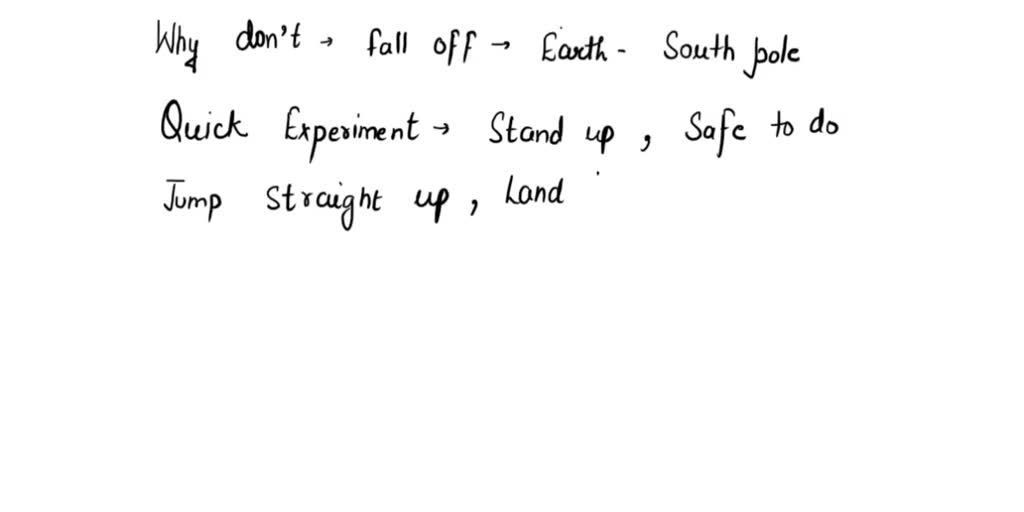 Why don't → fall off → Earth - South pole
Quick Experiment → Stand up, Safe to do
Jump straight up, Land